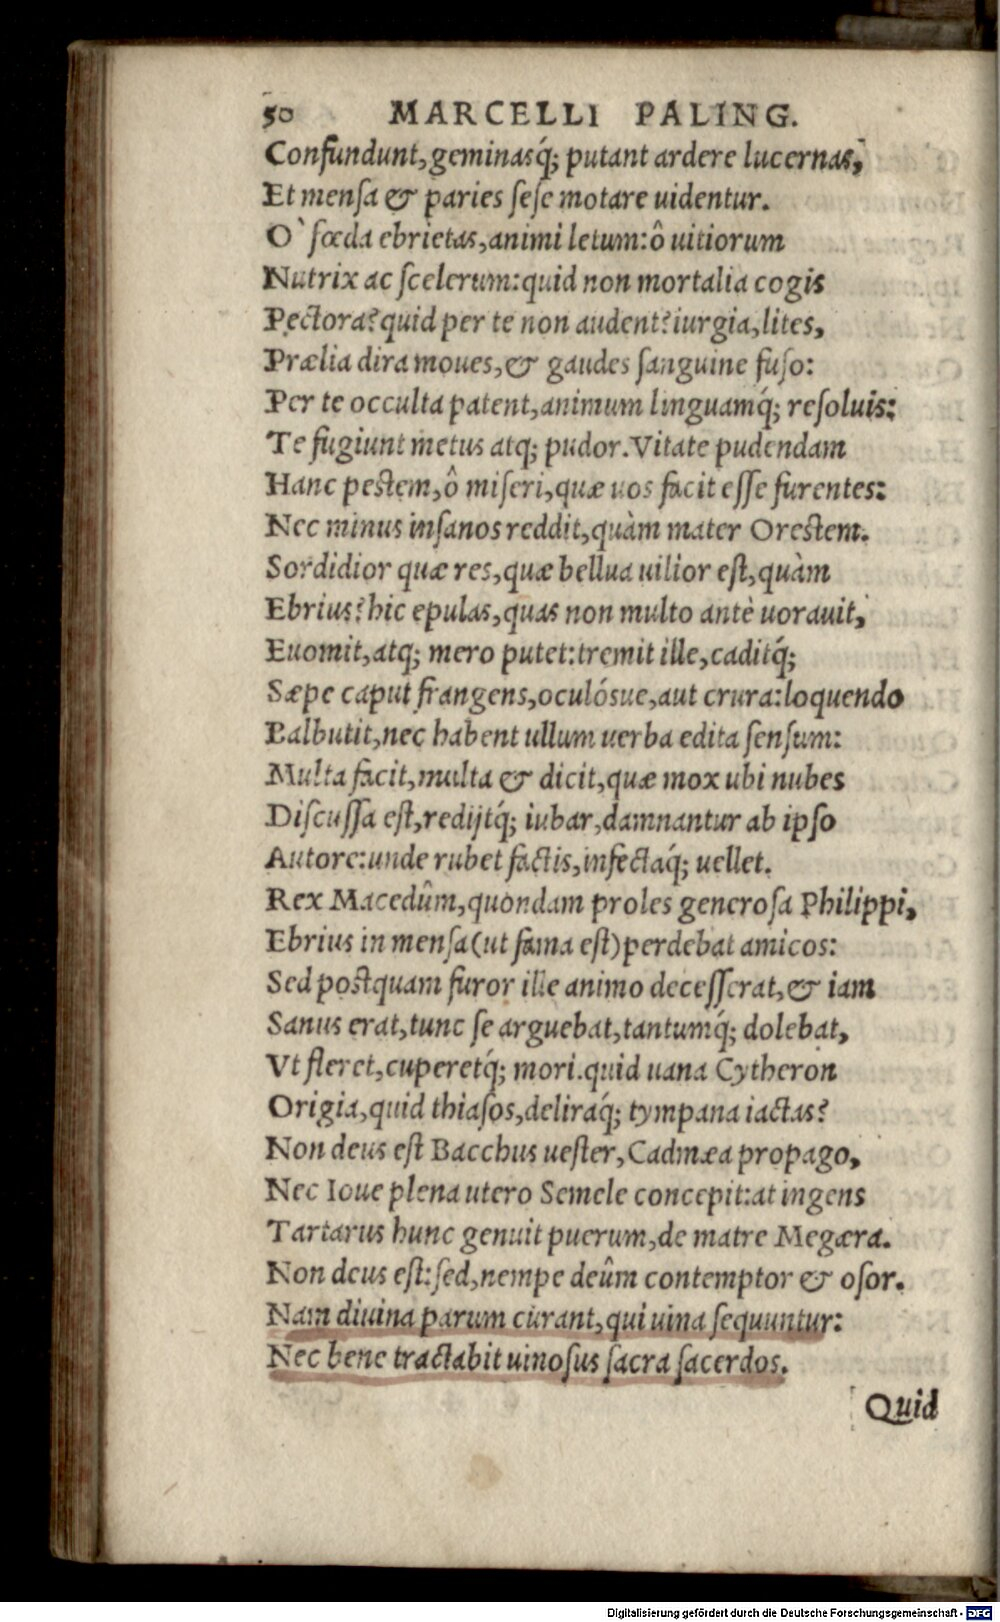 50 MARCELLI PALING.
Confundunt, geminasq́; putant ardere lucernas,
Et mensa & paries sese motare uidentur.
O` fœda ebrietas, animi letum: ô uitiorum
Nutrix ac scelerum: quid non mortalia cogis
Pectora? quid per te non audent? iurgia, lites,
Prælia dira moues, & gaudes sanguine fuso:
Per te occulta patent, animum linguamq́; resoluis:
Te fugiunt metus atq; pudor. Vitate pudendam
Hanc pestem, ô miseri, quæ uos facit esse furentes:
Nec minus insanos reddit, quàm mater Orestem.
Sordidior quæ res, quæ bellua uilior est, quàm
Ebrius? hic epulas, quas non multo antè uorauit,
Euomit, atq; mero putet: tremit ille, caditq́;
Sæpe caput frangens, oculósue, aut crura: loquendo
Balbutit, nec habent ullum uerba edita sensum:
Multa facit, multa & dicit, quæ mox ubi nubes
Discussa est, redijtq́; iubar, damnantur ab ipso
Autore: unde rubet factis, infectaq́; uellet.
Rex Macedûm, quondam proles generosa Philippi,
Ebrius in mensa (ut fama est) perdebat amicos:
Sed postquam furor ille animo decesserat, & iam
Sanus erat, tunc se arguebat, tantumq́; dolebat,
Vt fleret, cuperetq́; mori. quid uana Cytheron
Origia, quid thiasos, deliraq́; tympana iactas?
Non deus est Bacchus uester, Cadmæa propago,
Nec Ioue plena utero Semele concepit: at ingens
Tartarus hunc genuit puerum, de matre Megæra.
Non deus est: sed, nempe deûm contemptor & osor.
Nam diuina parum curant, qui uina sequuntur:
Nec bene tractabit uinosus sacra sacerdos.
Quid
Digitalisierung gefördert durch die Deutsche Forschungsgemeinschaft - DFG